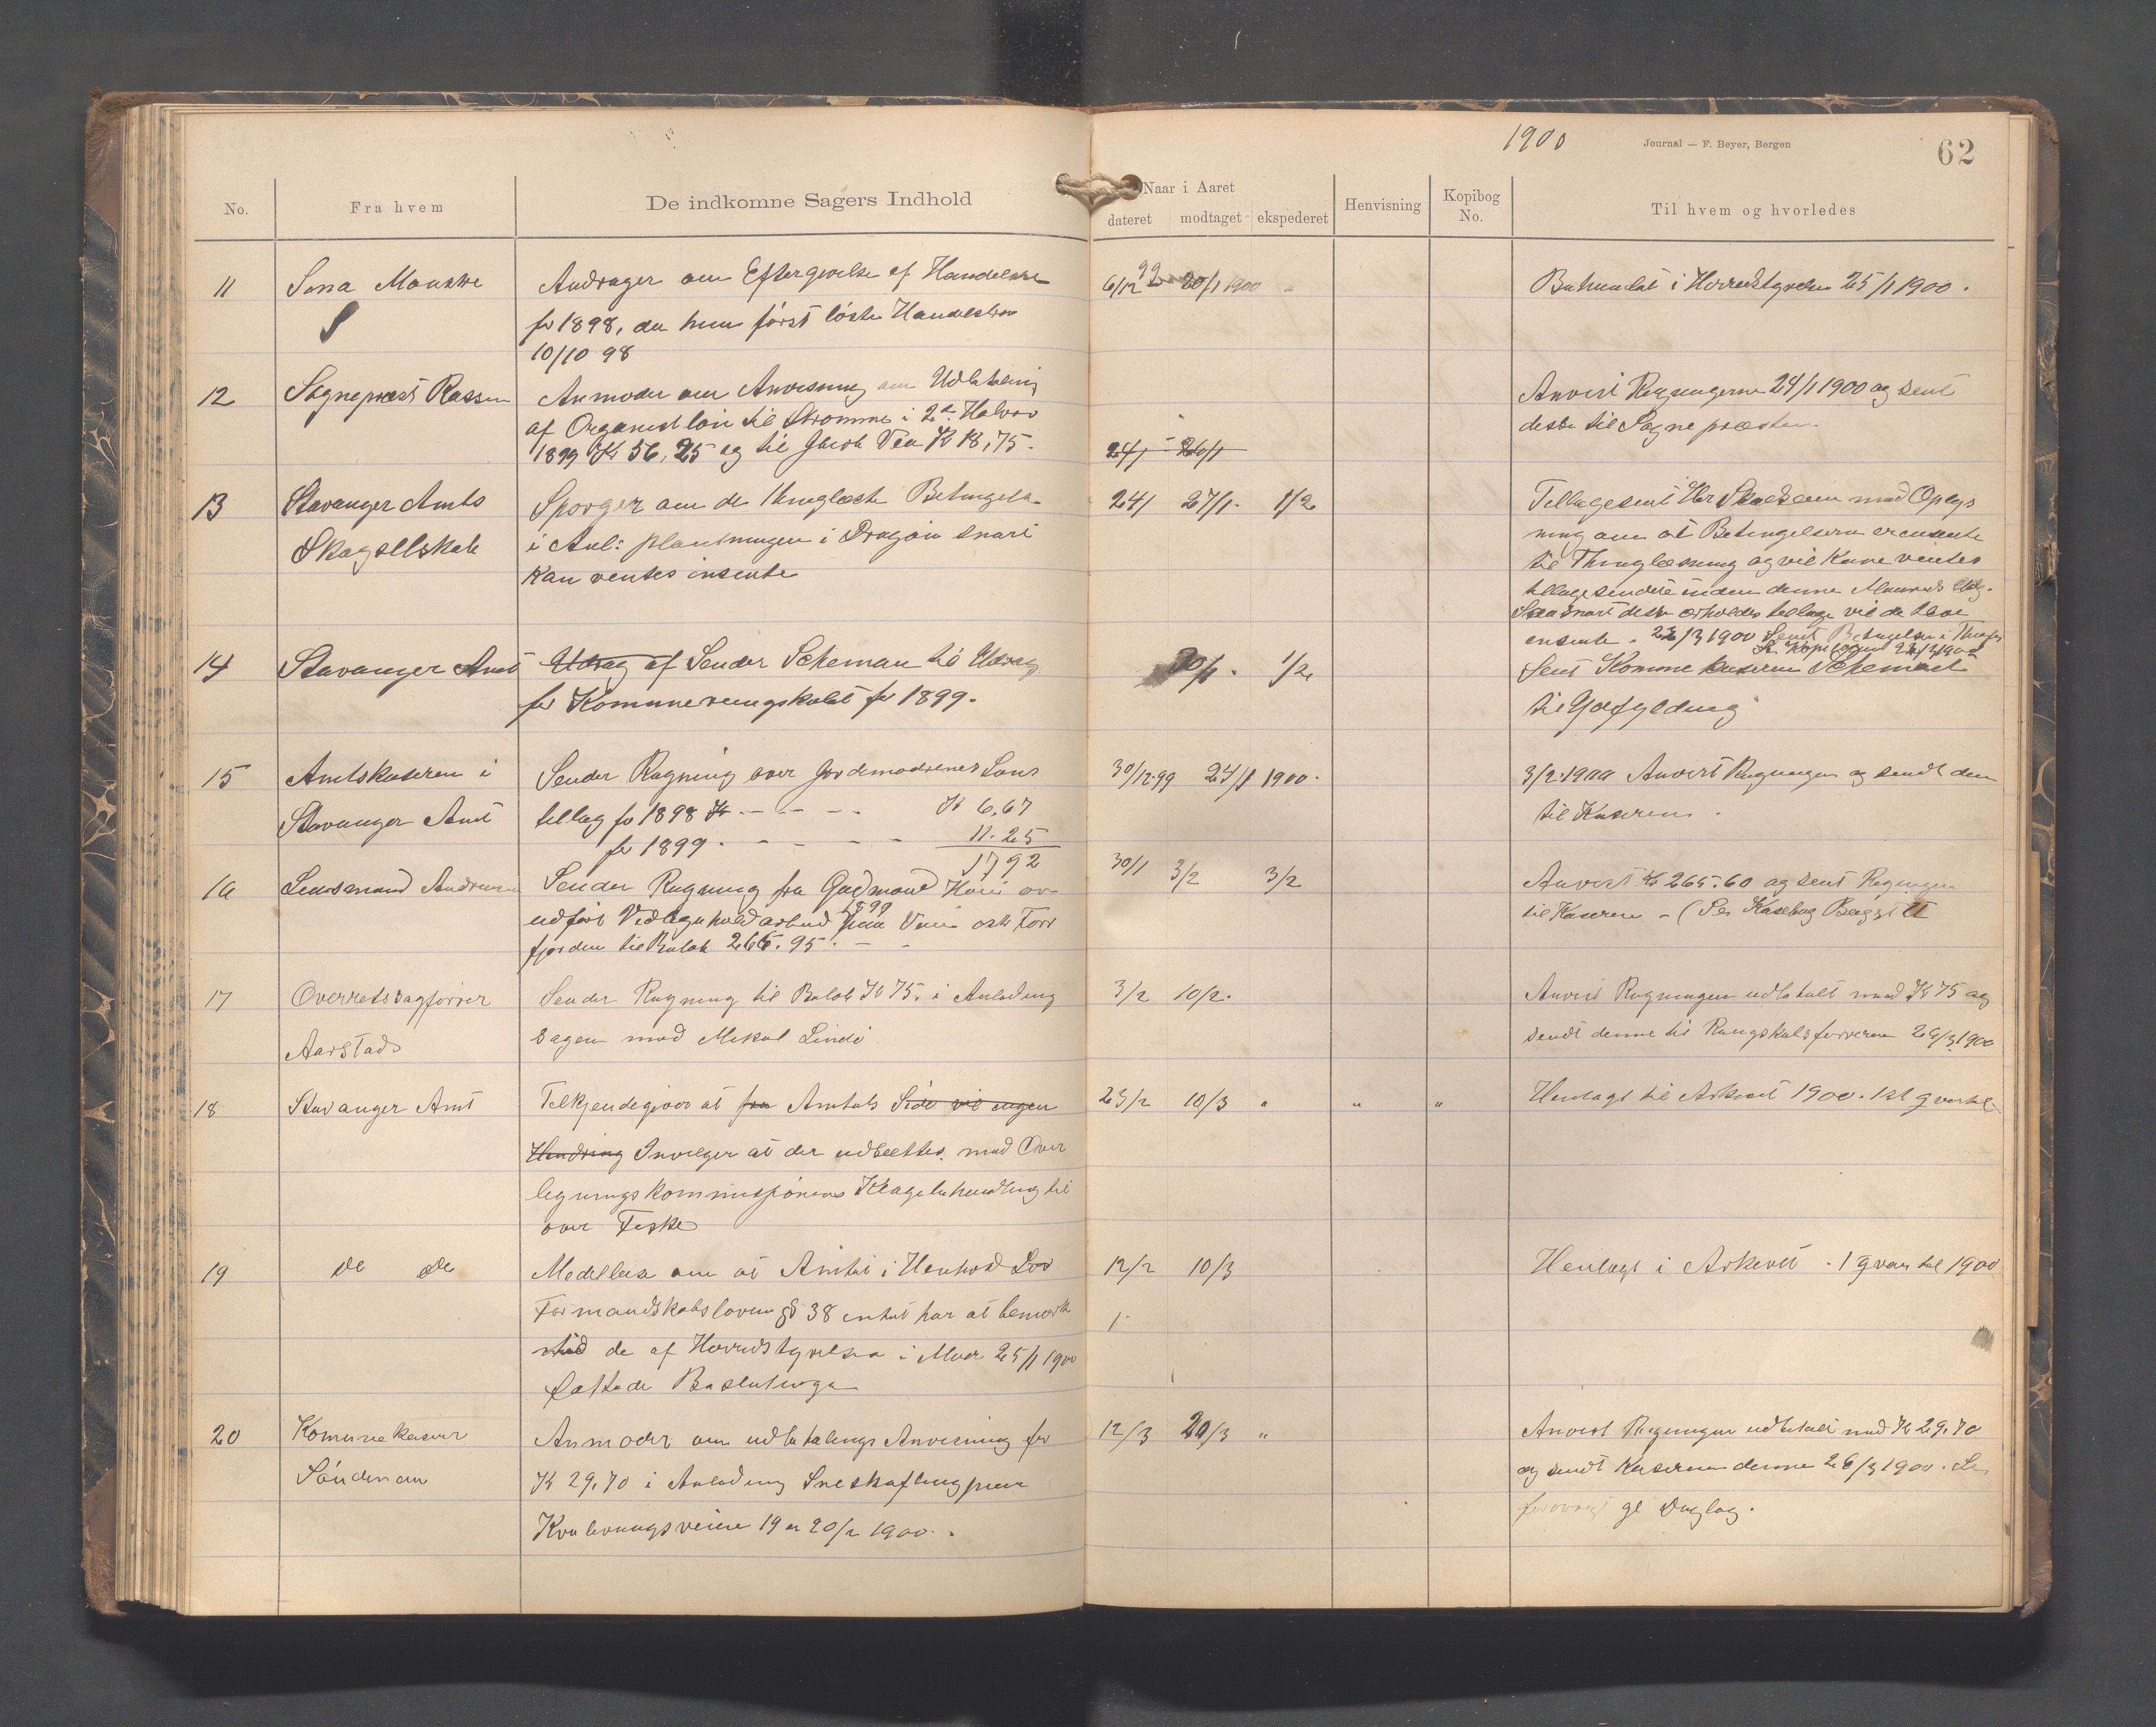 1900
Journal — F. Beyer, Bergen
62
No.
Fra hvem
De indkomne Sagers Indhold
Naar i Aaret
dateret modtaget ekspederet
Henvisning
Kopibog No.
Til hvem og hvorledes
11 Sena
Andrager om Eftergivelse af
for 1898, da hun først løste
10/10 98
6/12 99 20/1 1900 "
i Herredstyrelsen 25/1 1900.
12 Sognepræst
Anmoder om Anvisning om Udbetaling
af Organist løn til Strømme i 2det Halvaar
1899 Kr 56,25 og til Jacob Vea Kr 18,75.
24/1 - 26/1
Anvist Regningerne 24/1 1900 og sent
disse til Sognepræsten
13 Stavanger Amts
Skogselskab
Spørger om de thinglæste Betingelser
i Anl: plantningen i snart
kan ventes insente
24/1 27/1. 1/2
Tilbagesent Hr med Oplys
ning om at Betingelserne er
til Thinglæsning og vil kune ventes
tilbagesendte inden denne Maaneds Udg.
Saasnart disse erholdes tilbage vil de blive
ensente. 23/3 1900 Sent Betingelser i
14 Stavanger Amt
Udrag af Sender Scheman til Udrag
for Kommuneregnskabet for 1899.
30/1. 1/2
Sent Kommunekaseren Schemaet
til Udfylding
15 Amtskaseren i
Stavanger Amt
Sender Regning over Jordemødrenes Løns
tillæg for 1898 Kr - - - - Kr 6,67
for 1899. - - - - 11.25
1792
30/12.99 24/1 1900.
3/2.1900 Anvist Regningen og sendt den
til Kaseren.
16 Lensmand Andreasen
Sender Regning fra Gudmund
udført Vedligeholdarbeid 1899
fjorden til Beløb 266.95. -
30/1 3/2 3/2
Anvist Kr 265.60 og sent Regningen
til Kaseren - (Se Kasebog
17 Overretssagfører
Aarstad
Sender Regning til Beløb Kr 75. i Anledning
sagen mod Mikal Lindø
3/2 10/2.
Anvist Regningen udbetalt med Kr 75 og
sendt denne til Rengskabsføreren 26/3 1900
18 Stavanger Amt
Tilkjendegiver at fra Amtets Side vil ingen
Hindring Invilger at der udsættes med Over
ligningskommissjonens Klagebehandling til
over Fiske
23/2 10/3 " " "
Henlagt til Arkivet 1900. 1ste qvartal
19 de de
Meddelelse om at Amtet i Henhold Lov
Formandskabsloven § 38 intet har at bemærke
ved de af Herredstyrelsen i Møde 25/1 1900
fattede Beslutninger
12/2 10/3
1.
Henlagt i Arkivet. 1 qvartal 1900
20 Komunekaserer
Søndenaa
Anmoder om udbetalings Anvisning for
Kr 29.70 i Anledning Sneskufling paa
Kvalevaagsveiene 19 og 20/2 1900.
12/3 20/3 "
Anvist Regningen udbetalt med Kr 29.70
og sendt Kaseren denne 26/3 1900. Se
forøvrigt